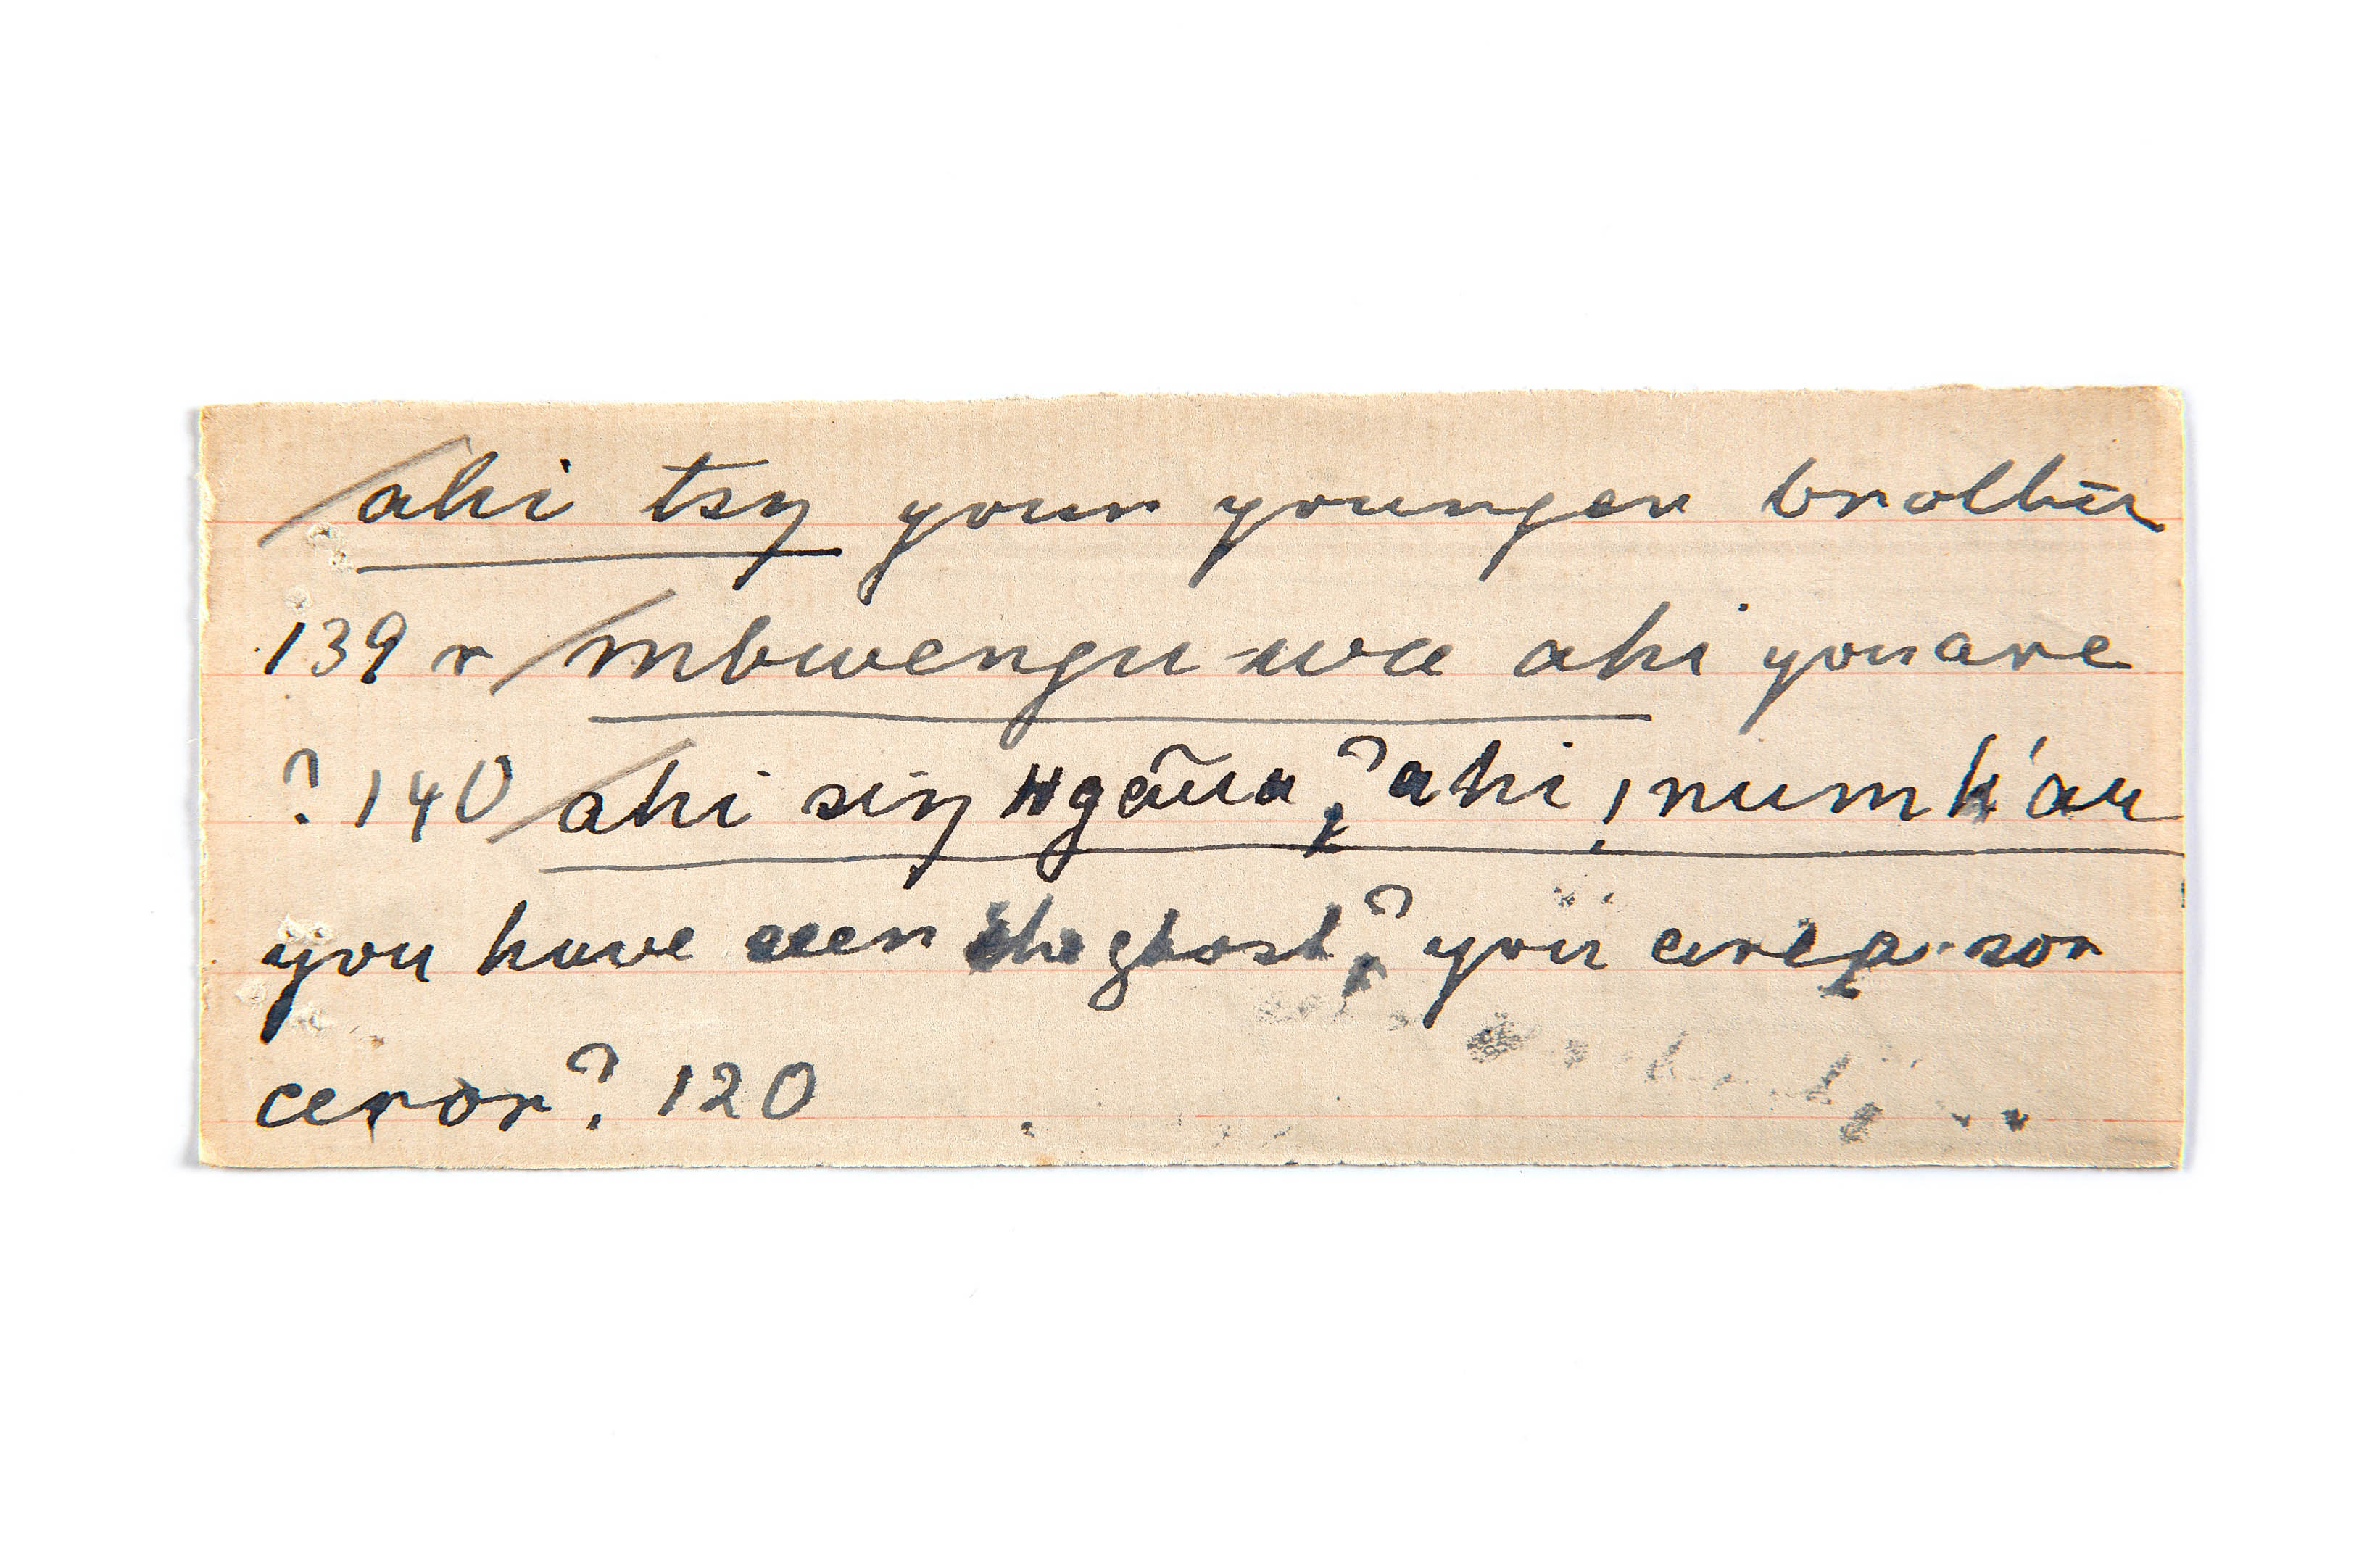 ahi tsŋ your younger brother
139 r mbwengu-wa ahi you are
? 140 ahi siŋ ngãũa,? ahi ! num k'au
you have seen the ghost,? you are a sor
ceror? 120